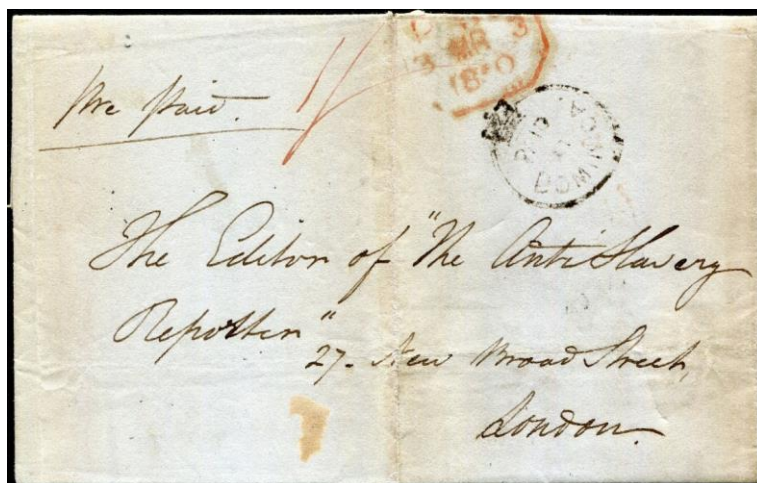 3
3 MR
18 0
Pre Paid.
1/
PAID
DOMINICA
The Editor of "The Anti Slavery
Reporter"
27- New Broad Street,
London.